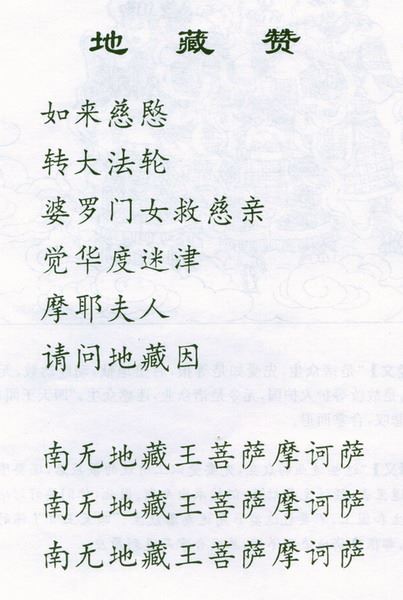 地藏赞
如来慈愍
转大法轮
婆罗门女救慈亲
觉华度迷津
摩耶夫人
请问地藏因
南无地藏王菩萨摩诃萨
南无地藏王菩萨摩诃萨
南无地藏王菩萨摩诃萨